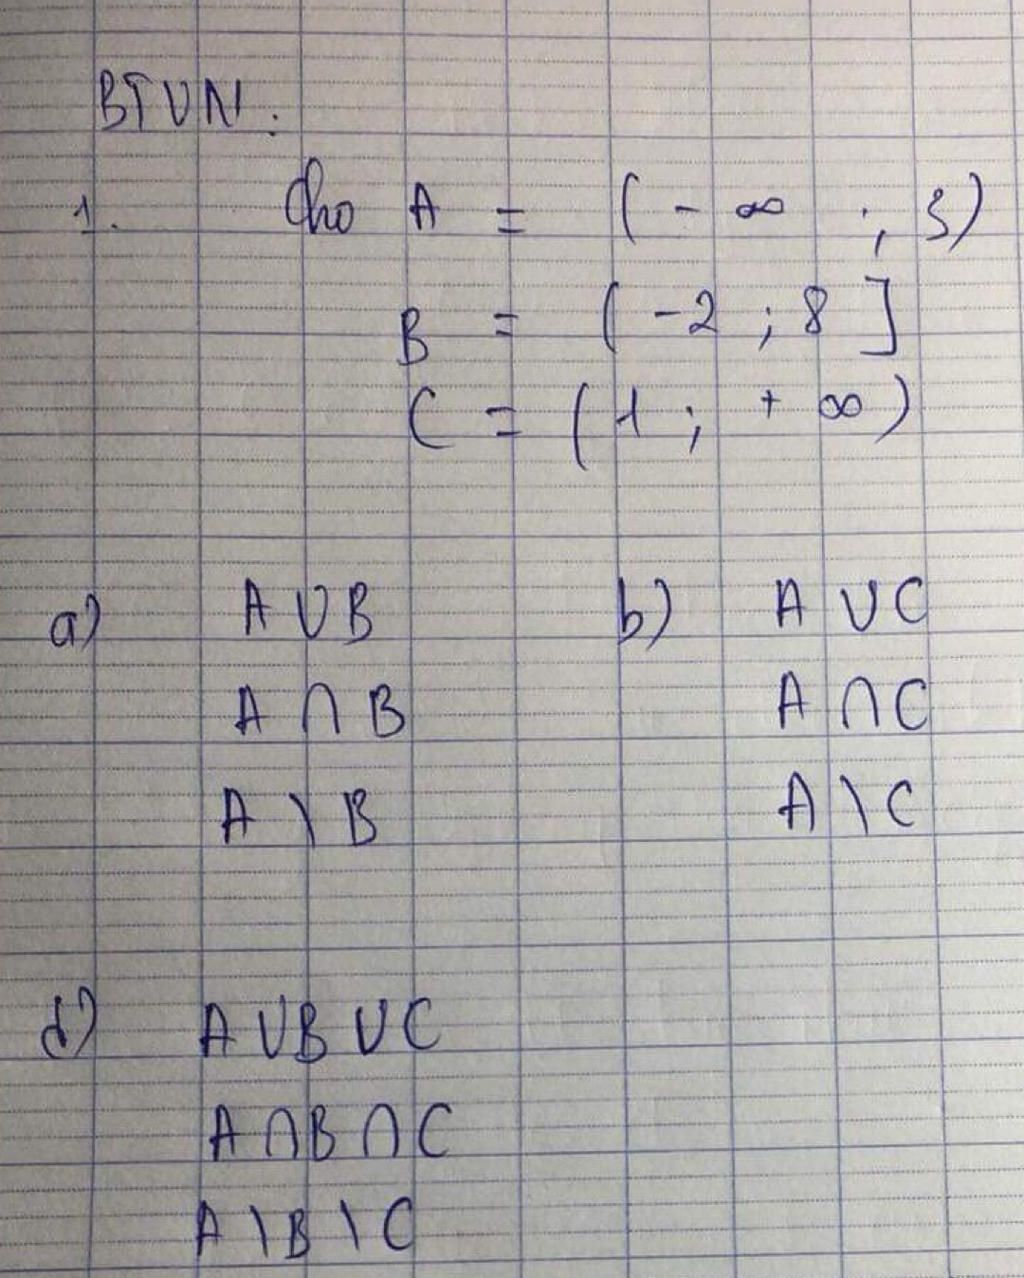 BTVN.
1. Cho A = (-∞ ; 3)
B = (-2 ; 8]
C = (1 ; +∞)
a) A ∪ B b) A ∪ C
A ∩ B A ∩ C
A \ B A \ C
d) A ∪ B ∪ C
A ∩ B ∩ C
A \ B \ C